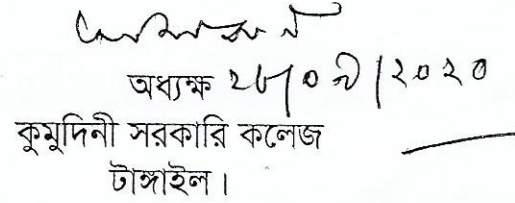 অধ্যক্ষ ২৮/০৯/২০২০
কুমুদিনী সরকারি কলেজ
টাঙ্গাইল।